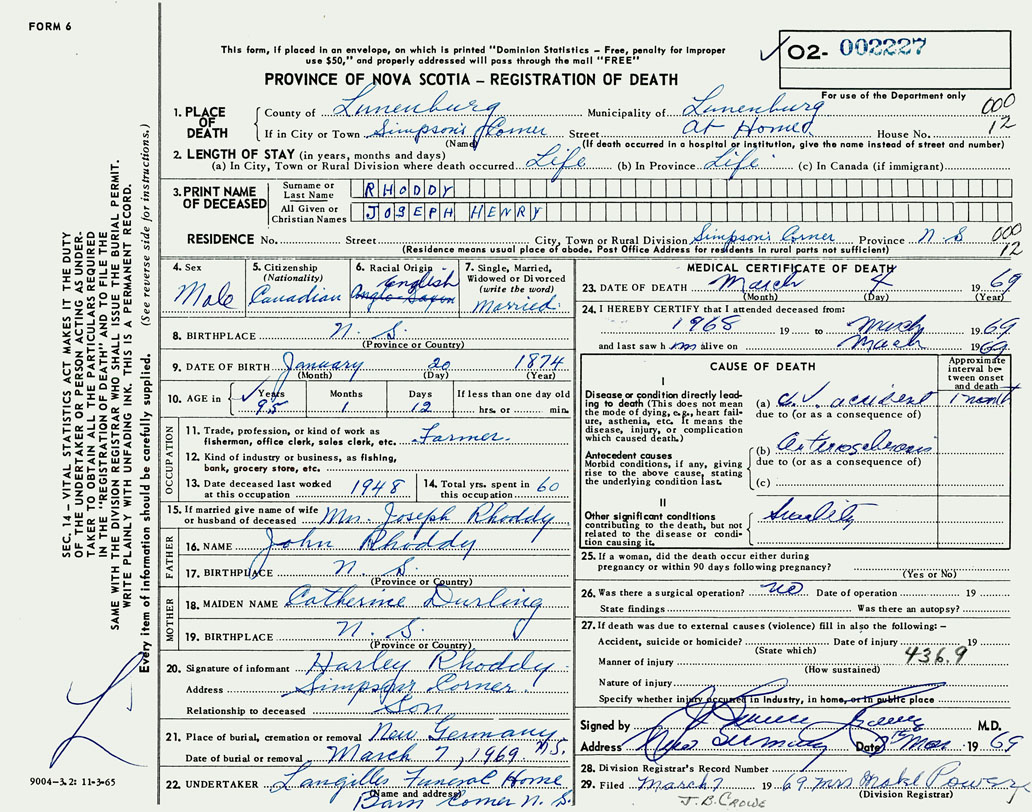 FORM 6
This form, if placed in an envelope, on which is printed "Dominion Statistics – Free, penalty for improper
use $50," and properly addressed will pass through the mail "FREE"
PROVINCE OF NOVA SCOTIA – REGISTRATION OF DEATH
✓ O2- 002227
For use of the Department only
1. PLACE OF DEATH { County of Lunenburg Municipality of Lunenburg 000
If in City or Town Simpson's Corner Street At Home House No. 12
(Name) (If death occurred in a hospital or institution, give the name instead of street and number)
2. LENGTH OF STAY (in years, months and days)
(a) In City, Town or Rural Division where death occurred Life (b) In Province Life (c) In Canada (if immigrant)
3. PRINT NAME OF DECEASED { Surname or Last Name RHODDY
All Given or Christian Names JOSEPH HENRY
RESIDENCE No. Street City, Town or Rural Division Simpson's Corner Province N.S 000
(Residence means usual place of abode. Post Office Address for residents in rural parts not sufficient) 12
4. Sex Male
5. Citizenship (Nationality) Canadian
6. Racial Origin English Anglo-Saxon
7. Single, Married, Widowed or Divorced (write the word) Married
8. BIRTHPLACE N. S.
(Province or Country)
9. DATE OF BIRTH January 20 1874
(Month) (Day) (Year)
10. AGE in { Years ✓ 95 Months 1 Days 12 If less than one day old
hrs. or min.
OCCUPATION
11. Trade, profession or kind of work as
fisherman, office clerk, sales clerk, etc. Farmer
12. Kind of industry or business, as fishing,
bank, grocery store, etc.
13. Date deceased last worked
at this occupation 1948
14. Total yrs. spent in
this occupation 60
15. If married give name of wife
or husband of deceased Mrs. Joseph Rhoddy
FATHER
16. NAME John Rhoddy
17. BIRTHPLACE N. S.
(Province or Country)
MOTHER
18. MAIDEN NAME Catherine Durling
19. BIRTHPLACE N. S.
(Province or Country)
20. Signature of informant Harley Rhoddy
Address Simpson Corner
Relationship to deceased Son
21. Place of burial, cremation or removal New Germany
Date of burial or removal March 7, 1969 N.S.
22. UNDERTAKER Langilles Funeral Home
(Name and address) Barss Corner N.S.
MEDICAL CERTIFICATE OF DEATH
23. DATE OF DEATH March 4 1969
(Month) (Day) (Year)
24. I HEREBY CERTIFY that I attended deceased from:
1968 19 to March 1969
and last saw him alive on March 1969
CAUSE OF DEATH
Approximate interval between onset and death
I
Disease or condition directly leading to death (This does not mean the mode of dying, e.g., heart failure, asthenia, etc. It means the disease, injury, or complication which caused death.)
(a) C.V. accident 1 month
due to (or as a consequence of)
Antecedent causes
Morbid conditions, if any, giving rise to the above cause, stating the underlying condition last.
(b) Arteriosclerosis
due to (or as a consequence of)
(c)
II
Other significant conditions
contributing to the death, but not related to the disease or condition causing it.
Senility
25. If a woman, did the death occur either during
pregnancy or within 90 days following pregnancy?
(Yes or No)
26. Was there a surgical operation? no Date of operation 19
State findings Was there an autopsy?
27. If death was due to external causes (violence) fill in also the following: –
Accident, suicide or homicide? Date of injury 19
(State which)
Manner of injury 436.9
(How sustained)
Nature of injury
Specify whether injury occurred in Industry, in home, or in public place
Signed by M.D.
Address New Germany Date Mar. 1969
28. Division Registrar's Record Number
29. Filed March 7 1969 Mrs Powers
(Division Registrar)
J.B. CROWE
SEC. 14 – VITAL STATISTICS ACT MAKES IT THE DUTY
OF THE UNDERTAKER OR PERSON ACTING AS UNDER-
TAKER TO OBTAIN ALL THE PARTICULARS REQUIRED
IN THE "REGISTRATION OF DEATH" AND TO FILE THE
SAME WITH THE DIVISION REGISTRAR WHO SHALL ISSUE THE BURIAL PERMIT.
WRITE PLAINLY WITH UNFADING INK. THIS IS A PERMANENT RECORD.
Every item of information should be carefully supplied. (See reverse side for instructions.)
9004-3.2: 11-3-65